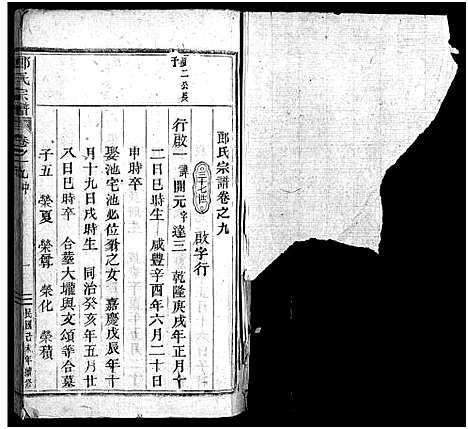 郎氏宗譜卷之九
三十七世
啟字行
二公長
子
行啟一 諱開元 字達三 乾隆庚戌年正月十
二日巳時生 咸豐辛酉年六月二十日
申時卒
娶池宅池必位翁之女 嘉慶戊辰年十
月十九日戌時生 同治癸亥年五月廿
八日巳時卒 合墓大壠與文頌等合墓
子五 榮夏 榮尊 榮化 榮積
郎氏宗譜
卷之九
民國己未年續修